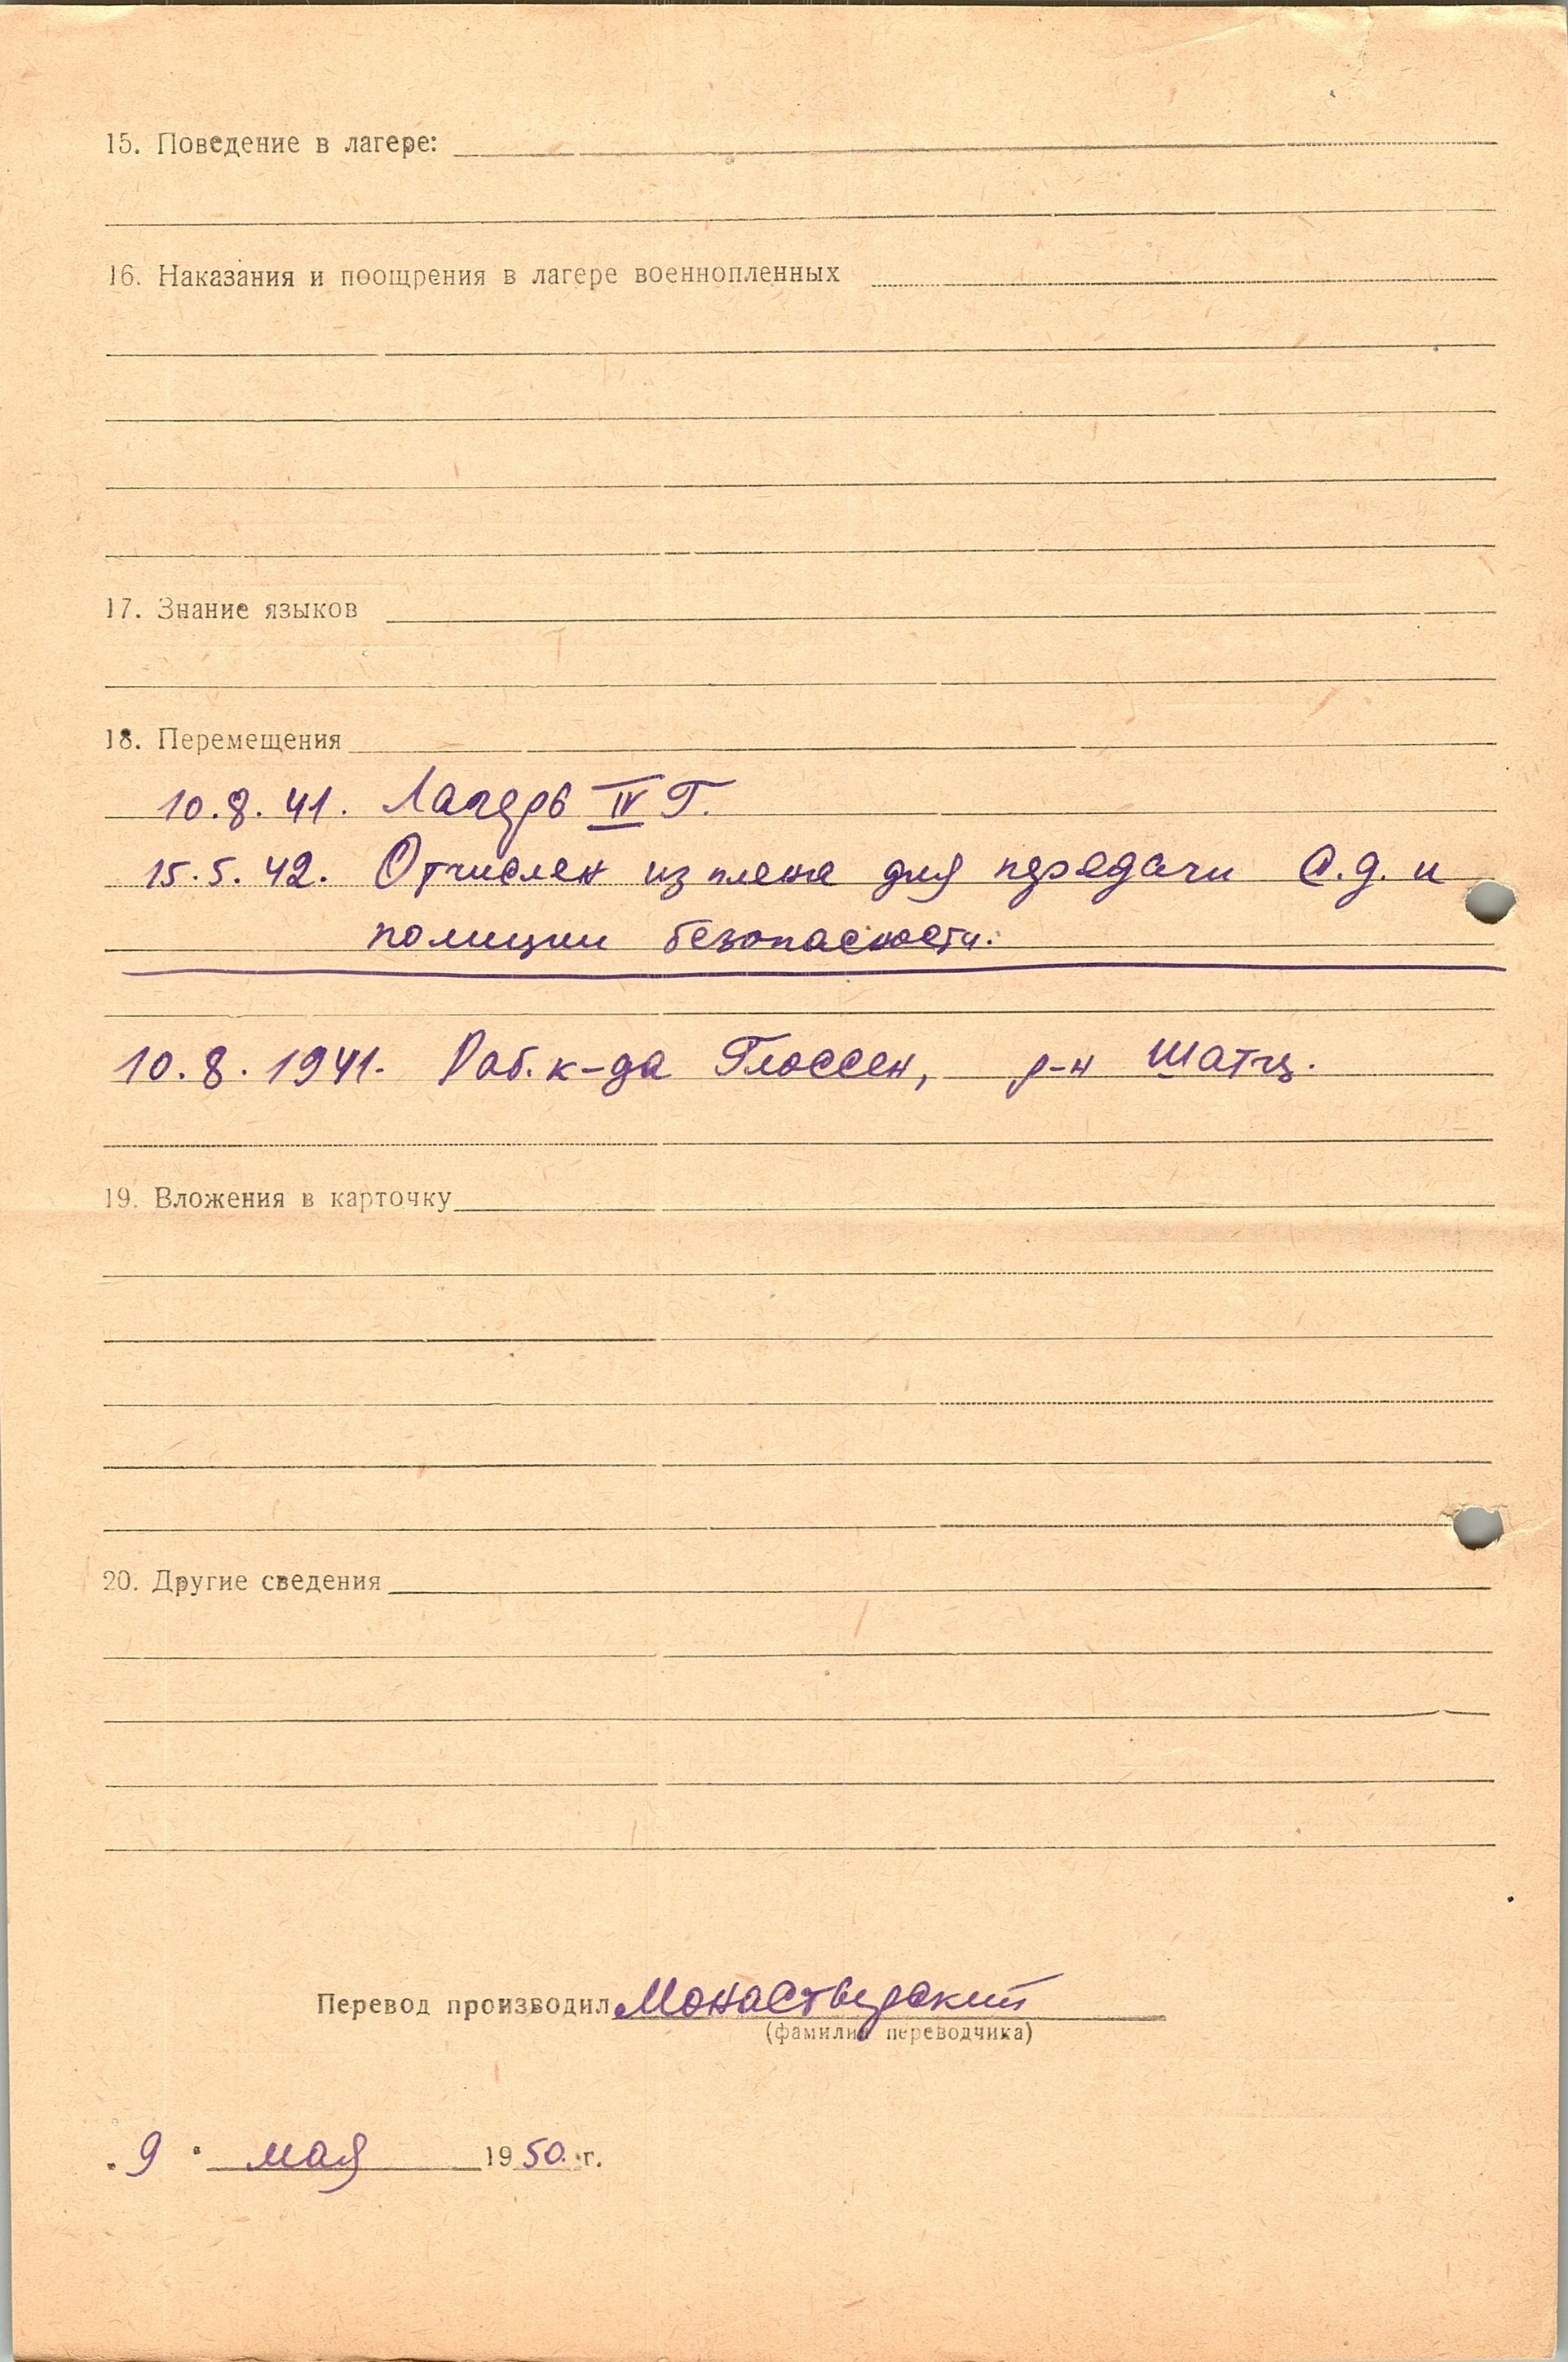 15. Поведение в лагере:
16. Наказания и поощрения в лагере военнопленных
17. Знание языков
18. Перемещения
10.8.41. Лагерь IV Г.
15.5.42. Отчислен из плена для передачи С.Д. и
полиции безопасности.
10.8.1941. Раб. к-да Глоссен, р-н Шатц.
19. Вложения в карточку
20. Другие сведения
Перевод производил Монастырский
(фамилия переводчика)
"9" мая 1950 г.